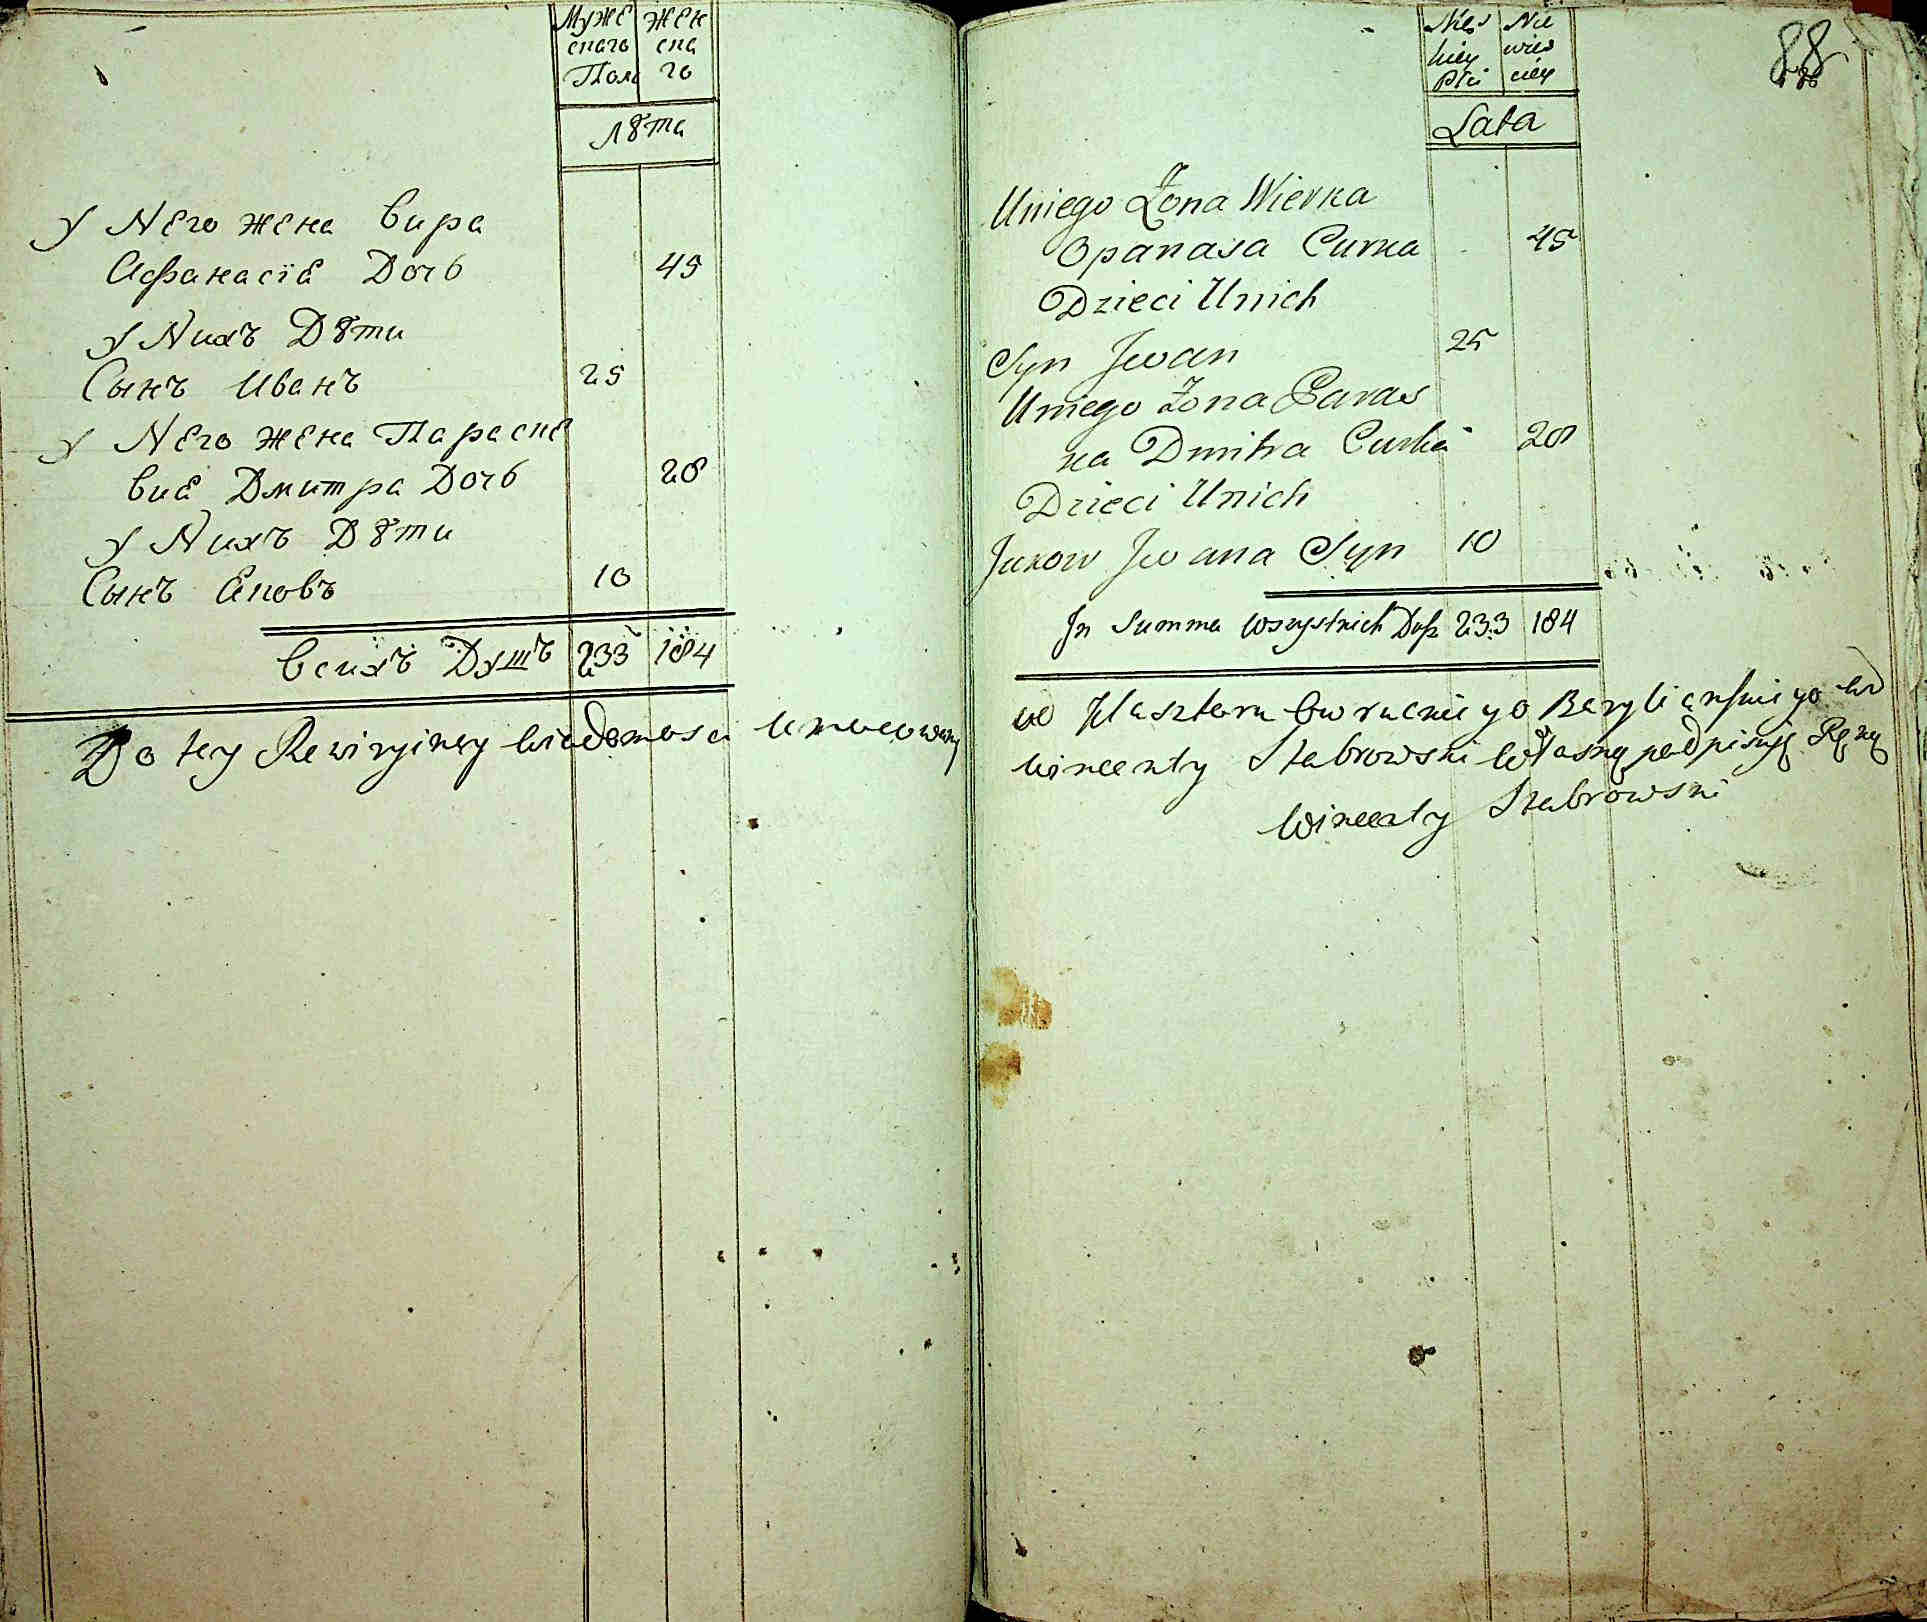 Муже Жен
скаго ска
Полꙋ го
лѣта
У Него жена Вира
Афанасїа Дочь 45
У Нихъ Дѣти
Сынъ Иванъ 25
У Него жена Параске
виа Дмитра Дочь 28
У Нихъ Дѣти
Сынъ Яковъ 10
Всихъ Душъ 233 184
Do tey Rewizyiney wiadomosci umocowany
88
Męs Nie
kiey wies
Płci ciey
Lata
Uniego Żona Wierka
Opanasa Curka 45
Dzieci Unich
Syn Jwan 25
Uniego Żona Paras
ka Dmitra Curka 28
Dzieci Unich
Jakow Jwana Syn 10
Jn Summa wszystkich Dusz 233 184
od Klasztoru Owruckiego Bazyliańskiego
Wincenty Stabrowski własną podpisuję Ręką
Wincenty Stabrowski